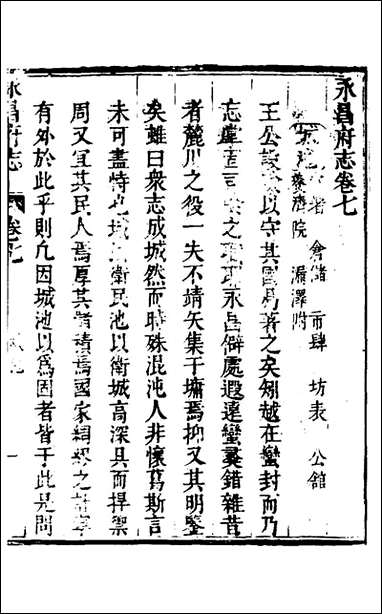 永昌府志卷七
城池 署 倉儲 市肆 坊表 公館
養濟院 漏澤附
王公設險以守其國易著之矣矧越在蠻封而乃
忘 永昌僻處遐邊蠻爨錯雜昔
者麓川之役一夫不靖矢集于墉焉抑又其明鑒
矣雖曰衆志成城然而時殊混沌人非懷葛斯言
未可盡恃也城以衛民池以衛城高深具而捍禦
周又宜其民人焉厚其儲積焉國家綢繆之計寧
有外於此乎則凡因城池以爲固者皆于此是問
永昌府志 卷之七 城池 一